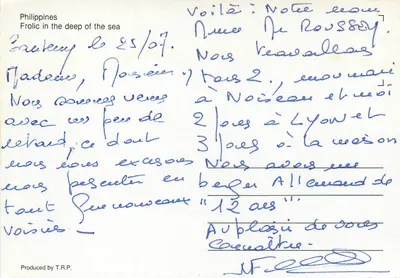 Philippines
Frolic in the deep of the sea
le 25/07.
Madame, Monsieur,
Nous sommes venus
avec un peu de
retard, ce dont
nous nous excusons
nous présenter en
tant que nouveaux
voisins _
Voilà : Notre nom
Mme Mr ROUSSEY.
Nous travaillons
tous 2., mon mari
à Noiseau et moi
2 jours à LYON et
3 jours à la maison
Nous avons un
berger Allemand de
"12 ans"
Au plaisir de vous
connaître.
Produced by T.R.P.